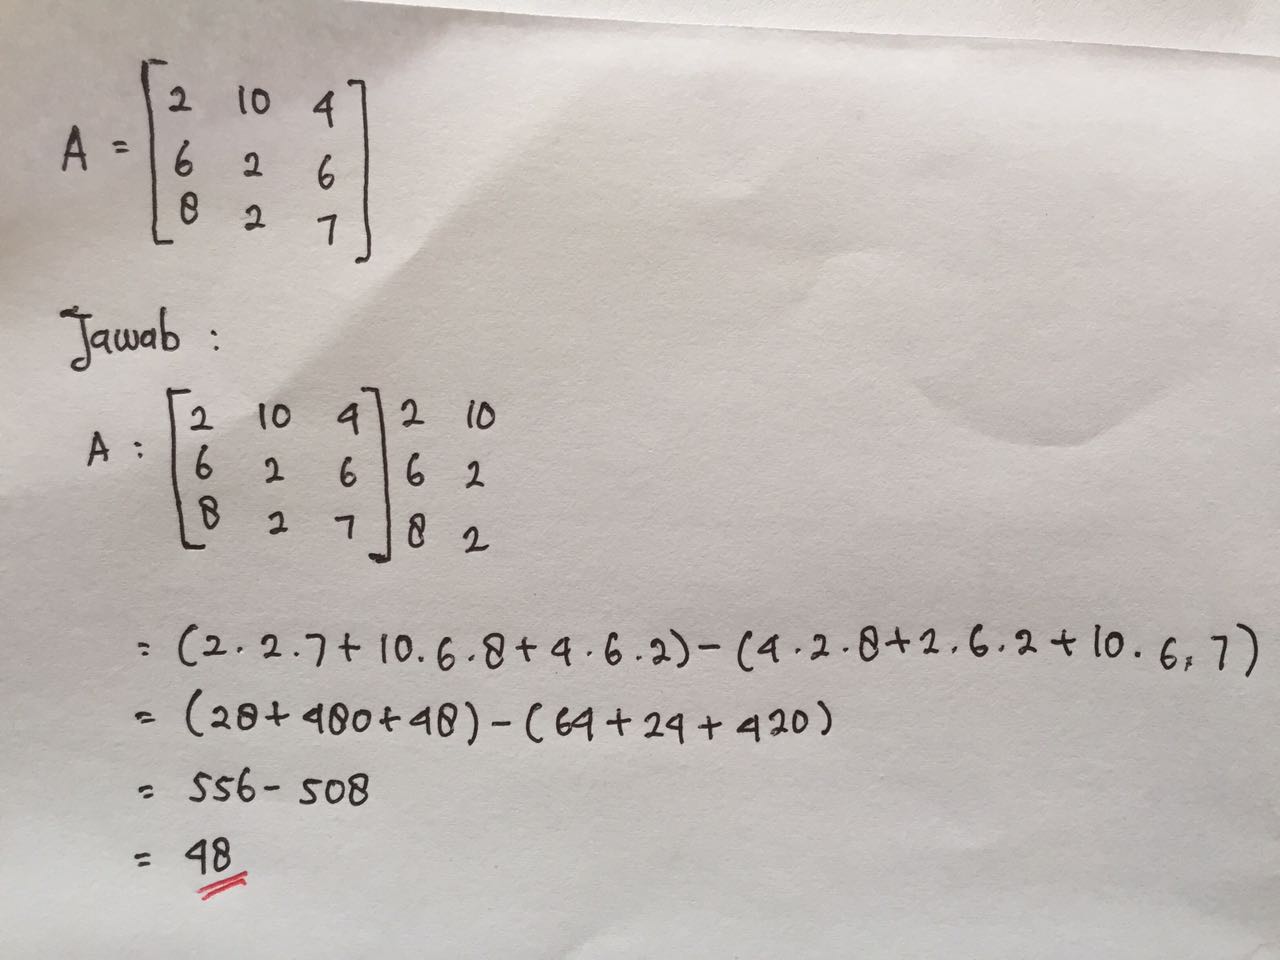 A = [2 10 4
6 2 6
8 2 7]
Jawab :
A : [2 10 4] 2 10
6 2 6 6 2
8 2 7 8 2
= (2 . 2 . 7 + 10 . 6 . 8 + 4 . 6 . 2) - (4 . 2 . 8 + 2 . 6 . 2 + 10 . 6 . 7)
= (28 + 480 + 48) - (64 + 24 + 420)
= 556 - 508
= 48